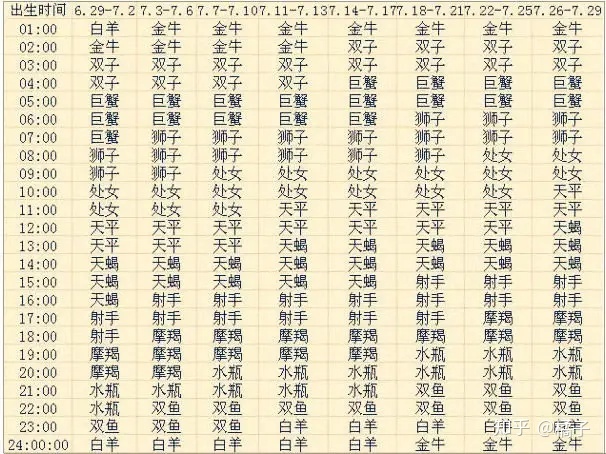 出生时间 6.29-7.2 7.3-7.6 7.7-7.10 7.11-7.13 7.14-7.17 7.18-7.21 7.22-7.25 7.26-7.29
01:00 白羊 金牛 金牛 金牛 金牛 金牛 金牛 金牛
02:00 金牛 金牛 金牛 金牛 双子 双子 双子 双子
03:00 双子 双子 双子 双子 双子 双子 双子 双子
04:00 双子 双子 双子 双子 巨蟹 巨蟹 巨蟹 巨蟹
05:00 巨蟹 巨蟹 巨蟹 巨蟹 巨蟹 巨蟹 巨蟹 巨蟹
06:00 巨蟹 巨蟹 巨蟹 巨蟹 巨蟹 狮子 狮子 狮子
07:00 巨蟹 狮子 狮子 狮子 狮子 狮子 狮子 狮子
08:00 狮子 狮子 狮子 狮子 狮子 狮子 处女 处女
09:00 狮子 狮子 处女 处女 处女 处女 处女 处女
10:00 处女 处女 处女 处女 处女 处女 处女 天平
11:00 处女 处女 处女 天平 天平 天平 天平 天平
12:00 天平 天平 天平 天平 天平 天平 天平 天蝎
13:00 天平 天平 天平 天蝎 天蝎 天蝎 天蝎 天蝎
14:00 天蝎 天蝎 天蝎 天蝎 天蝎 天蝎 天蝎 天蝎
15:00 天蝎 天蝎 天蝎 天蝎 天蝎 射手 射手 射手
16:00 天蝎 射手 射手 射手 射手 射手 射手 射手
17:00 射手 射手 射手 射手 射手 射手 摩羯 摩羯
18:00 射手 摩羯 摩羯 摩羯 摩羯 摩羯 摩羯 摩羯
19:00 摩羯 摩羯 摩羯 摩羯 摩羯 水瓶 水瓶 水瓶
20:00 摩羯 摩羯 水瓶 水瓶 水瓶 水瓶 水瓶 水瓶
21:00 水瓶 水瓶 水瓶 水瓶 水瓶 双鱼 双鱼 双鱼
22:00 水瓶 双鱼 双鱼 双鱼 双鱼 双鱼 双鱼 双鱼
23:00 双鱼 双鱼 双鱼 白羊 白羊 白羊 白羊 白羊
24:00:00 白羊 白羊 白羊 白羊 金牛 金牛 金牛
知乎 @橘子